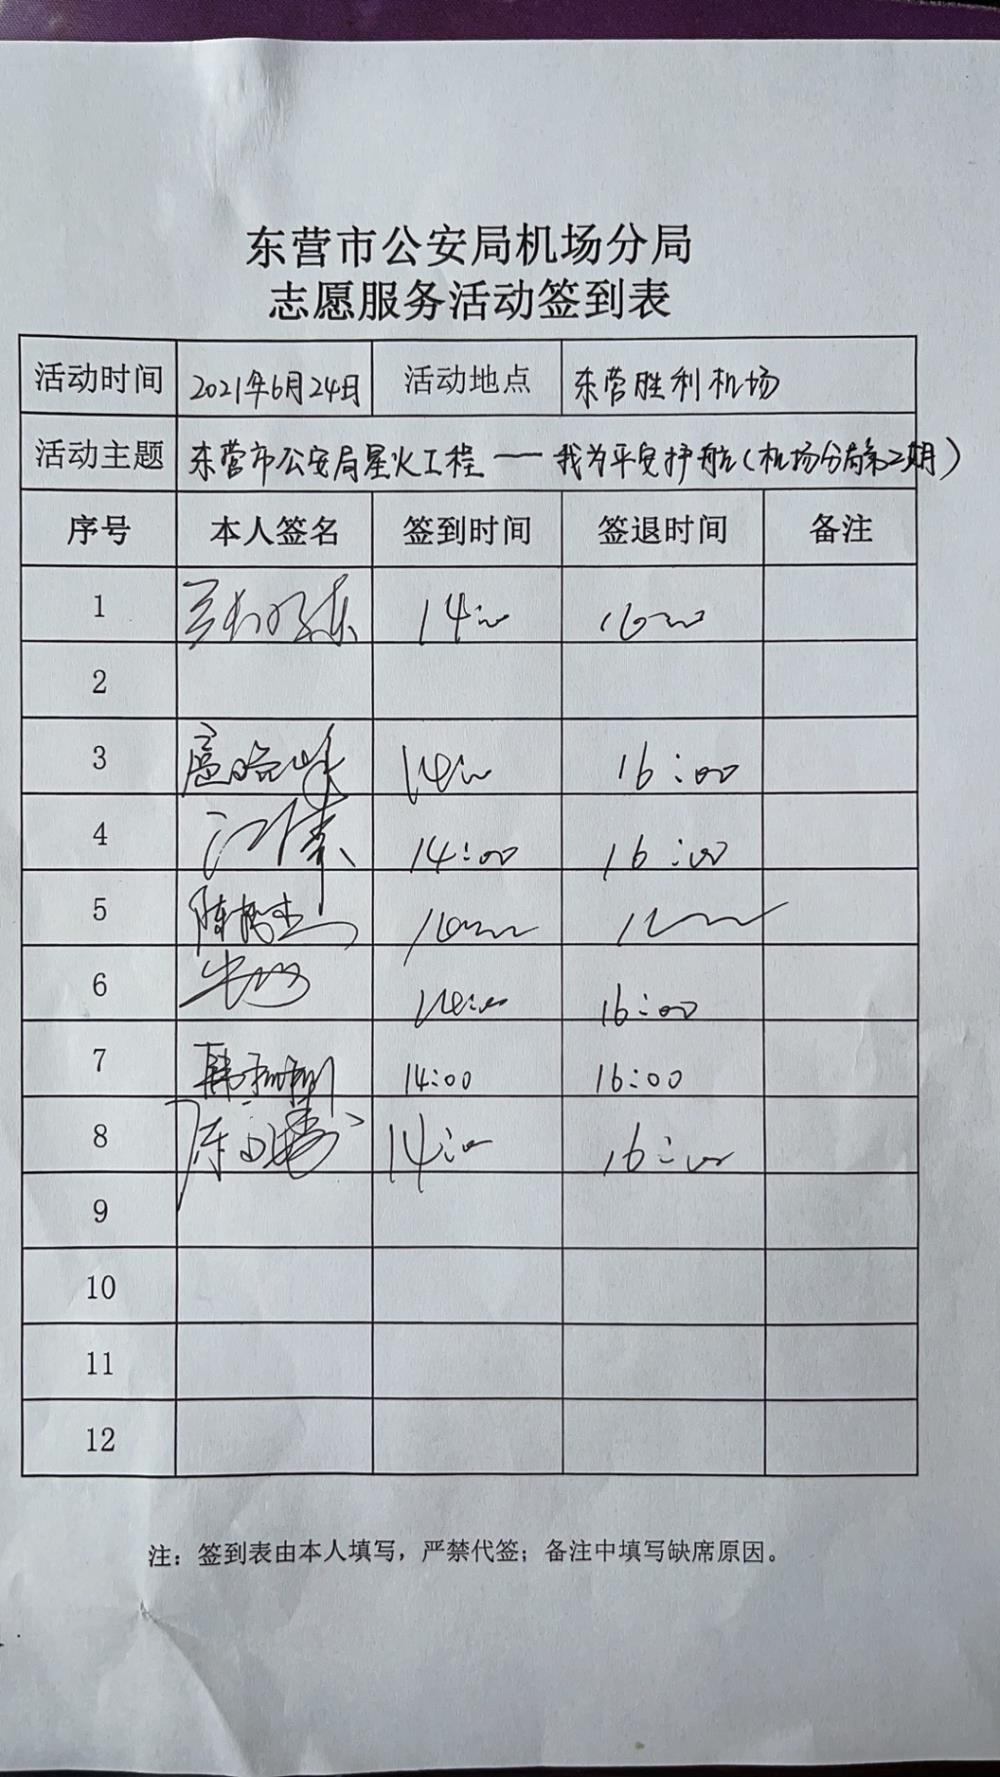 东营市公安局机场分局
志愿服务活动签到表
活动时间 2021年6月24日 活动地点 东营胜利机场
活动主题 东营市公安局星火工程——我为平安护航(机场分局第二期)
序号 本人签名 签到时间 签退时间 备注
1 14:00 16:00
2
3 14:00 16:00
4 14:00 16:00
5
6 14:00 16:00
7 14:00 16:00
8 14:00 16:00
9
10
11
12
注：签到表由本人填写，严禁代签；备注中填写缺席原因。